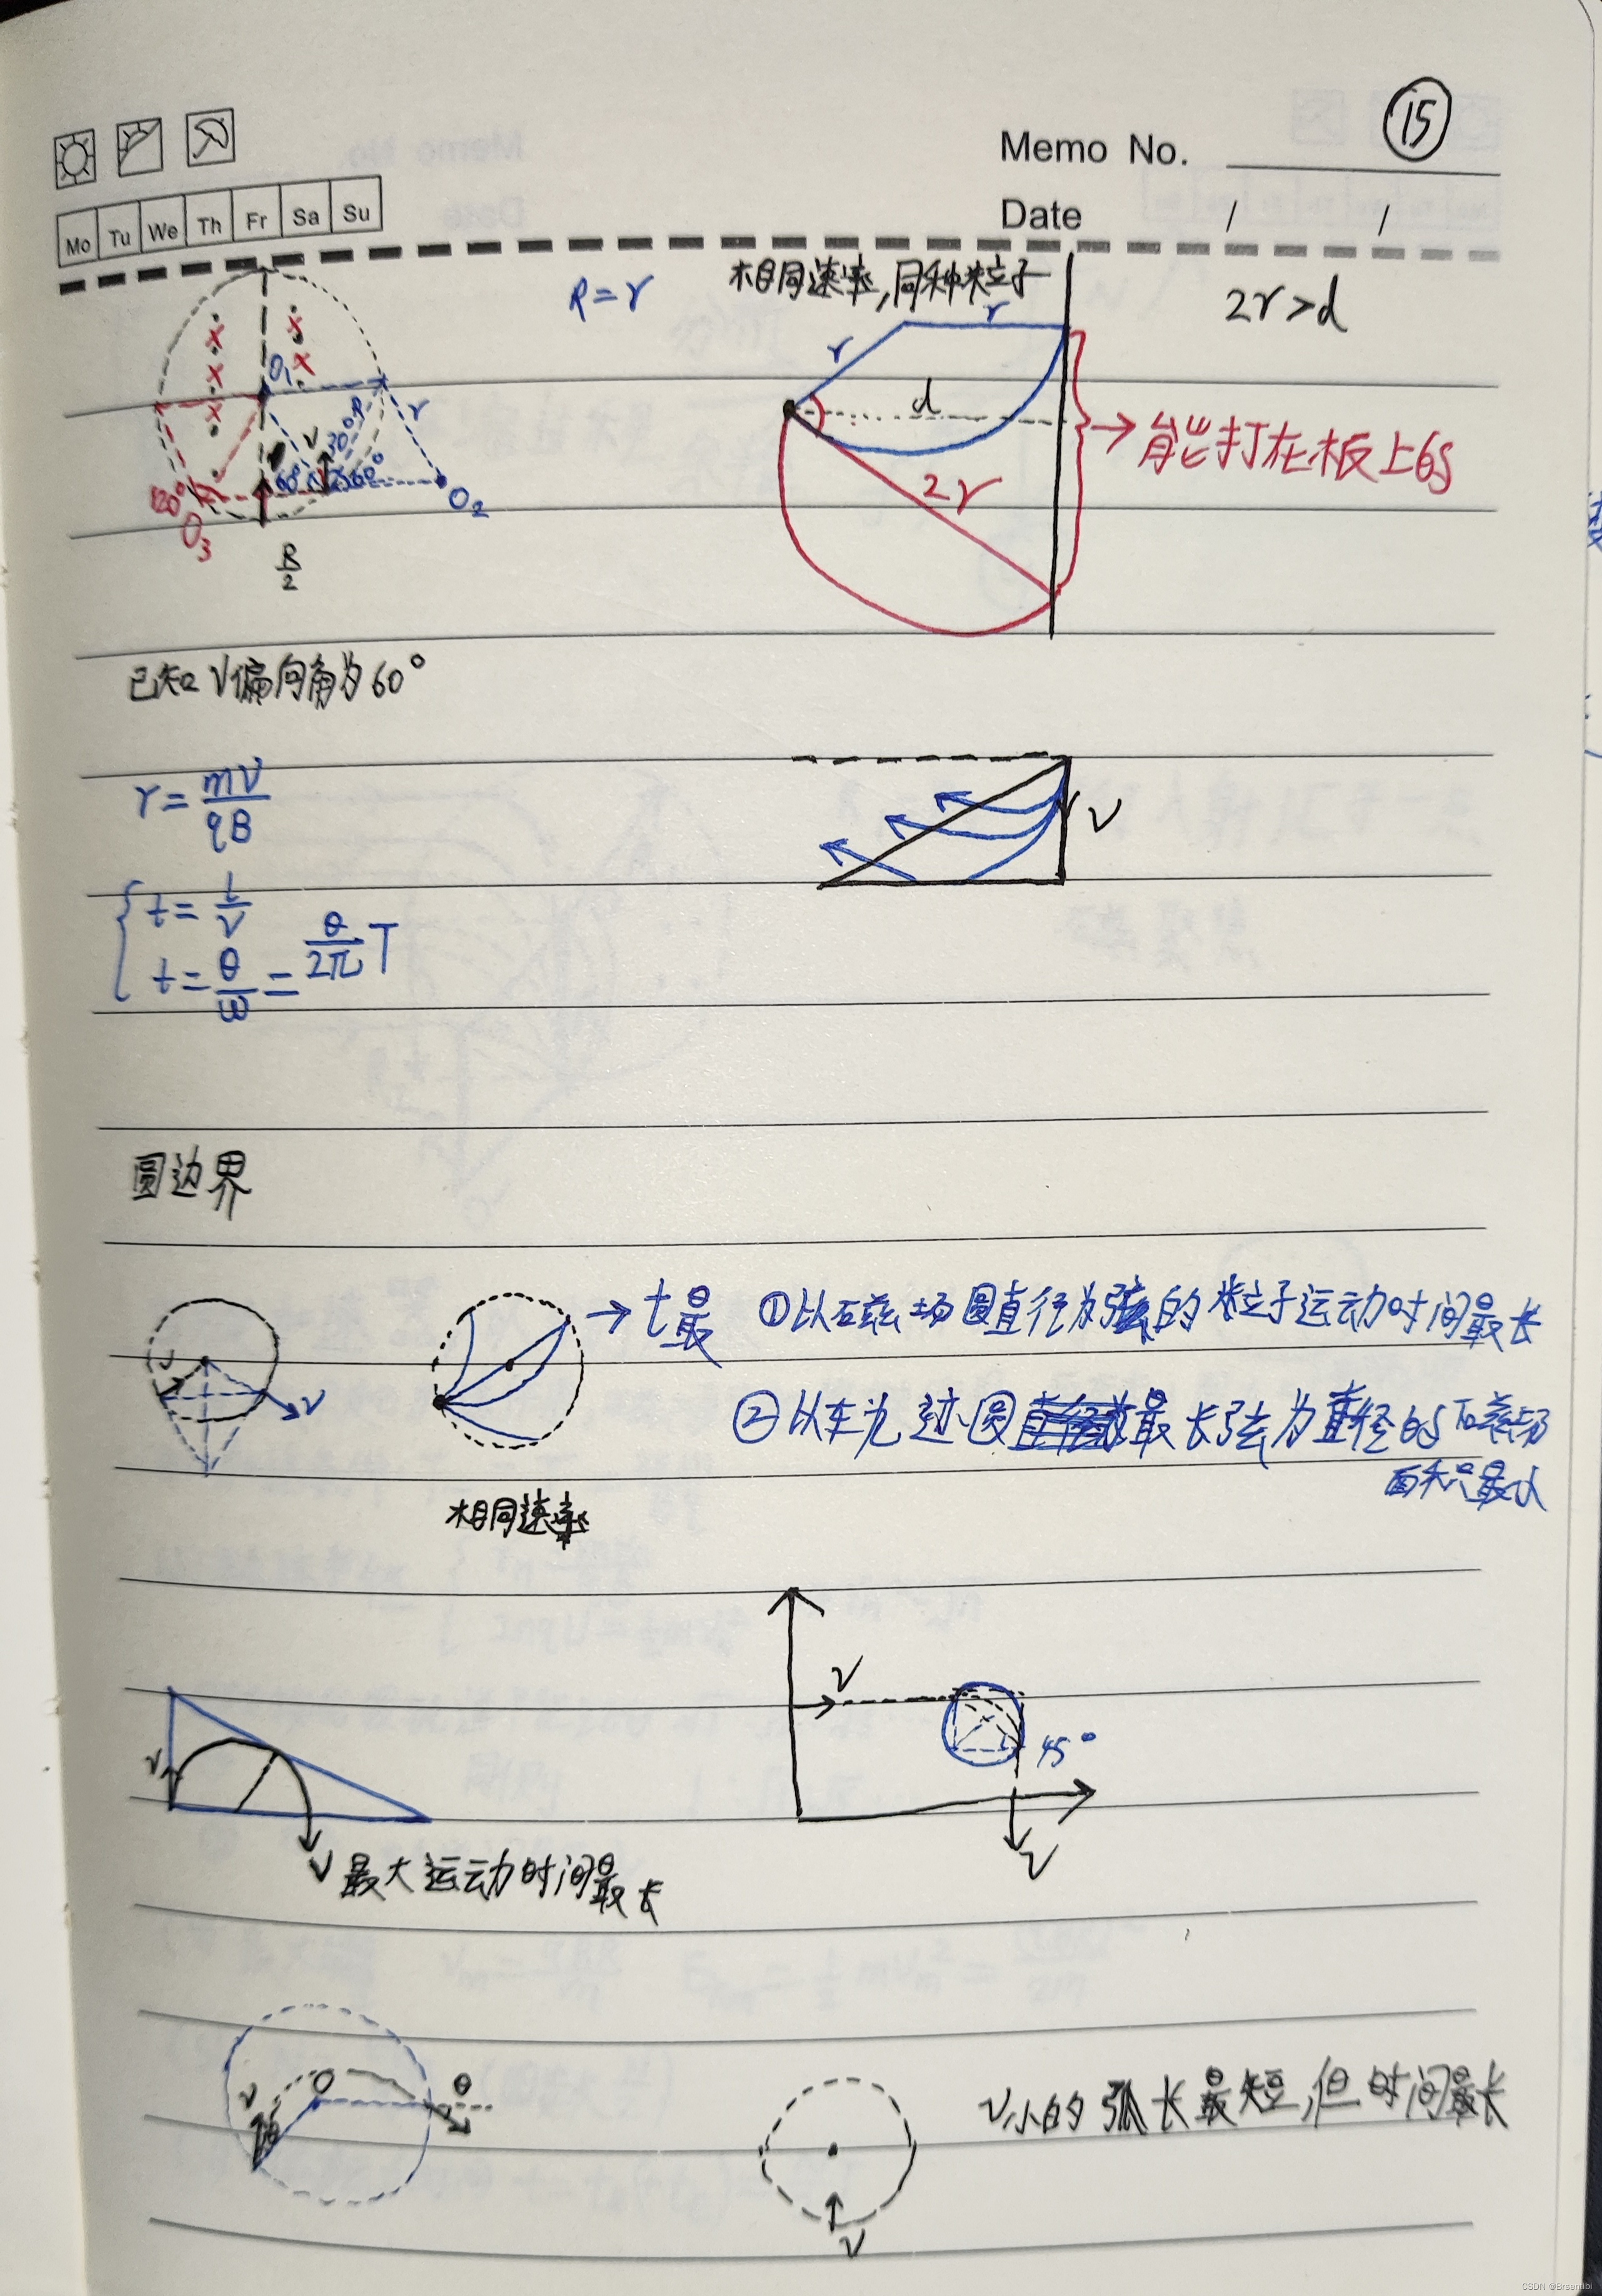 15
Memo No.
Date / /
Mo Tu We Th Fr Sa Su
R=r
相同速率,同种粒子
2r>d
O₁
R
r
30°
V
60°
60°
120°
O₃
O₂
R/2
r
r
d
2r
能打在板上的
已知V偏向角为60°
r=mv/qB
V
t=l/v
t=θ/ω=θ/2π T
圆边界
t最
①以磁场圆直径为弦的粒子运动时间最长
②以轨迹圆最长弦为直径的磁场
面积最小
V
相同速率
V
45°
V
V
V最大运动时间最长
O
V
θ
V小的弧长最短,但时间最长
V
CSDN @Brsentibi